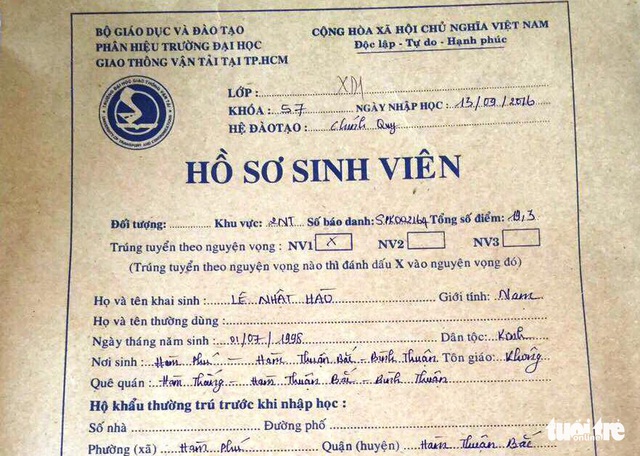 BỘ GIÁO DỤC VÀ ĐÀO TẠO
PHÂN HIỆU TRƯỜNG ĐẠI HỌC
GIAO THÔNG VẬN TẢI TẠI TP.HCM
CỘNG HÒA XÃ HỘI CHỦ NGHĨA VIỆT NAM
Độc lập - Tự do - Hạnh phúc
LỚP : XD1
KHÓA : 57 NGÀY NHẬP HỌC : 13/09/2016
HỆ ĐÀO TẠO : Chính Quy
HỒ SƠ SINH VIÊN
Đối tượng: Khu vực: 2NT Số báo danh: SPK002164 Tổng số điểm: 19,3
Trúng tuyển theo nguyện vọng : NV1 X NV2 NV3
(Trúng tuyển theo nguyện vọng nào thì đánh dấu X vào nguyện vọng đó)
Họ và tên khai sinh : LÊ NHẬT HÀO Giới tính: Nam
Họ và tên thường dùng :
Ngày tháng năm sinh : 01/07/1998 Dân tộc: Kinh
Nơi sinh : Hàm Phú - Hàm Thuận Bắc - Bình Thuận Tôn giáo: Không
Quê quán : Hàm Thắng - Hàm Thuận Bắc - Bình Thuận
Hộ khẩu thường trú trước khi nhập học :
Số nhà Đường phố
Phường (xã) : Hàm Phú Quận (huyện) : Hàm Thuận Bắc
tuổi trẻ
online